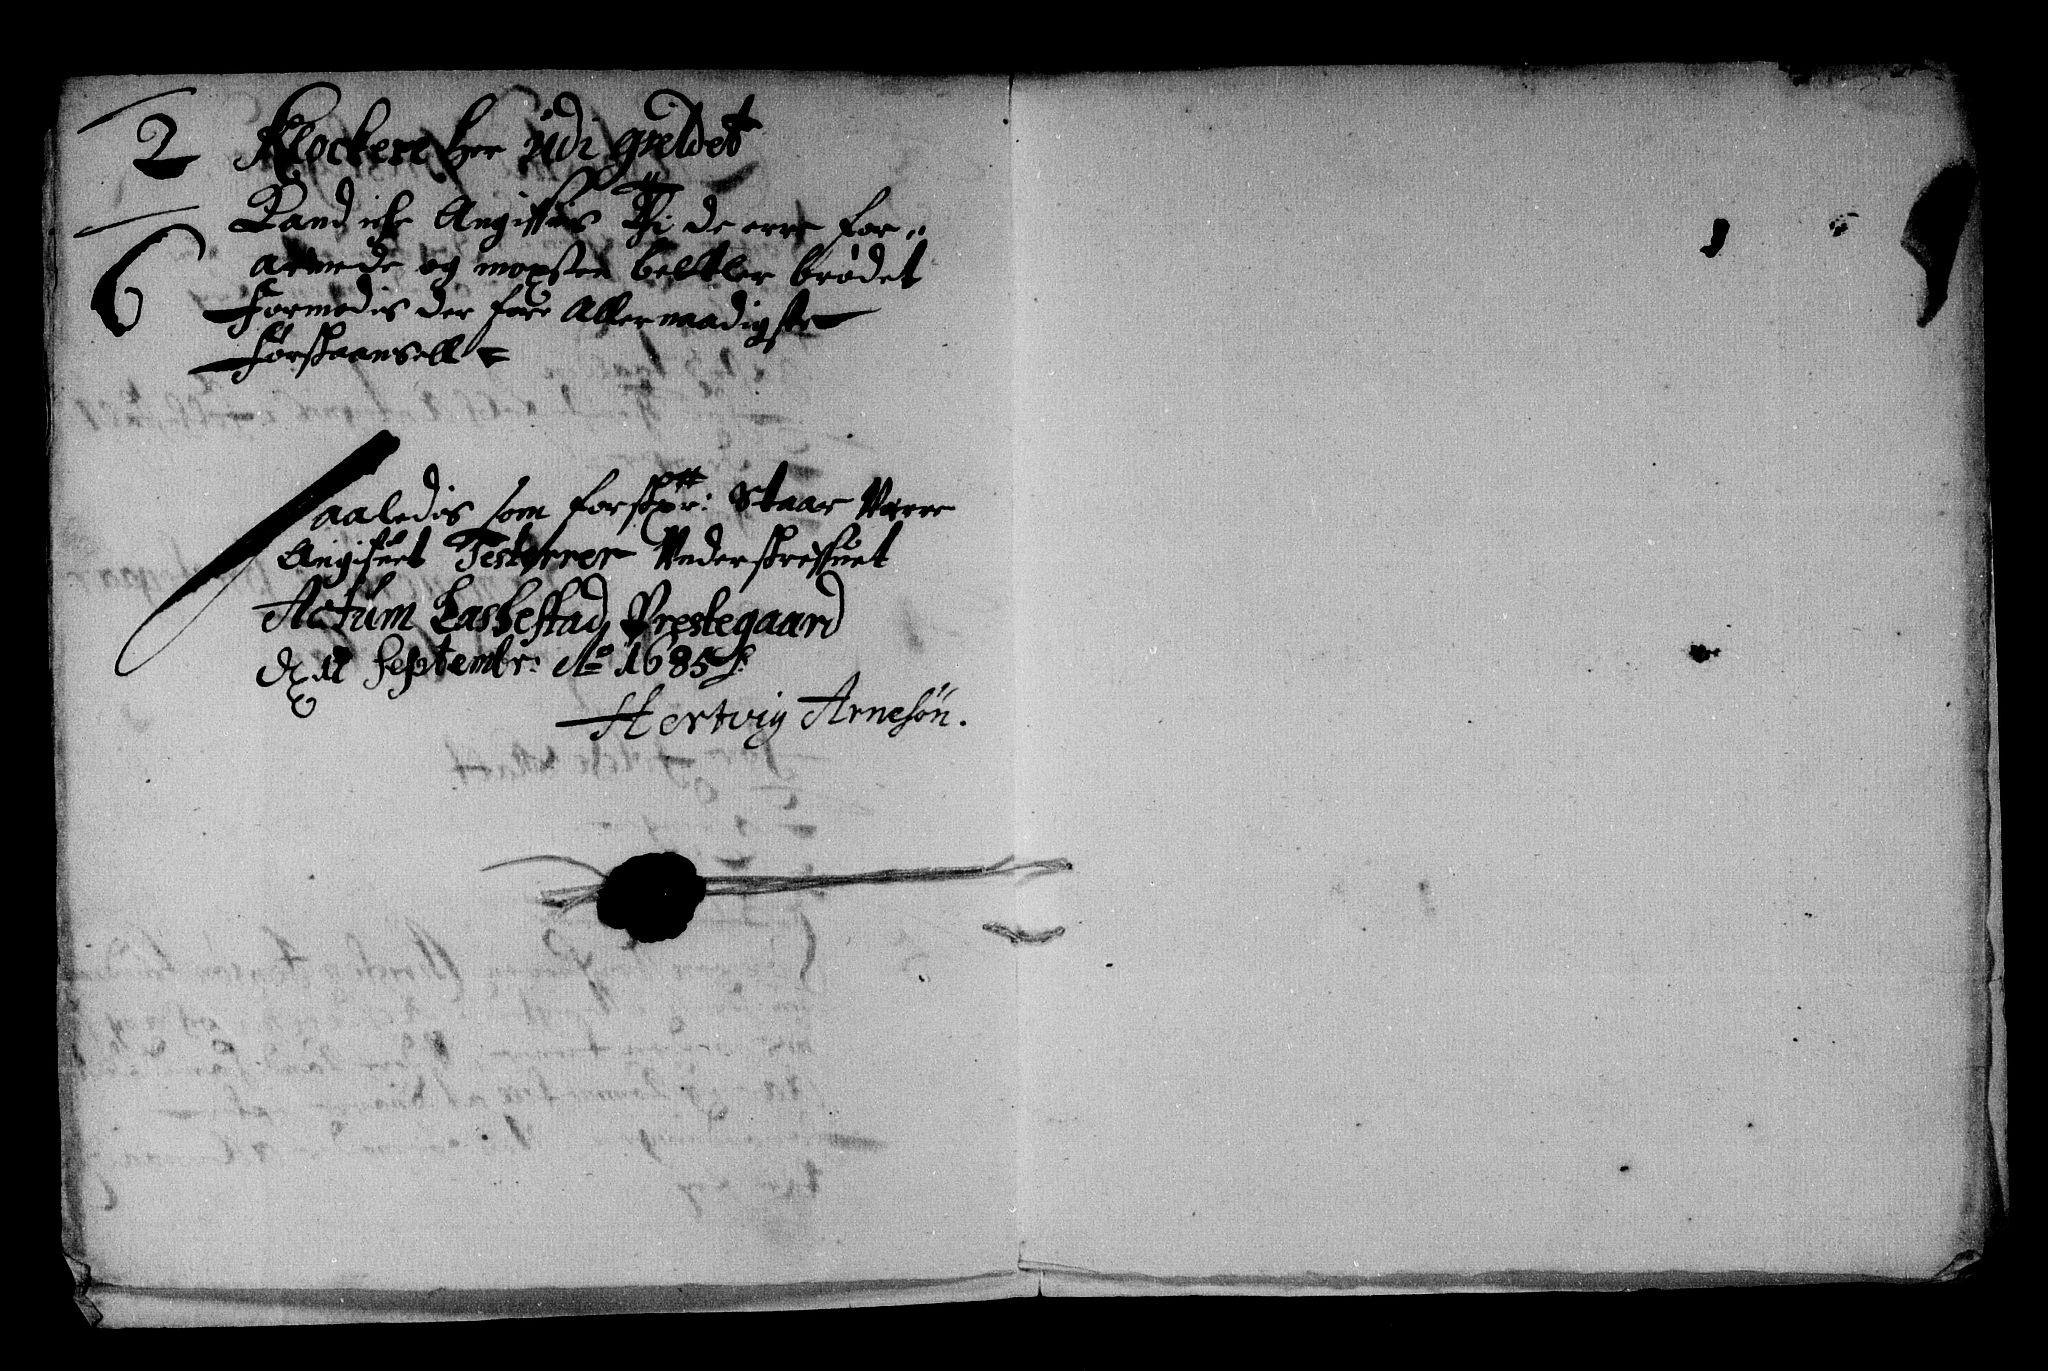 2 Klockere her udi gieldet
Kand iche Angiffues Thi de erre for„
armede og mesten bettler brødet
Formodis der fore Allernaadigste
Forskaansell
6
Saaledis som forskr: staar Verre
Angifuet Testerrer Underskreffuet
Actum Præstegaard
d. 11 Septembr: Ao 1685
Hertvig Arnesøn.